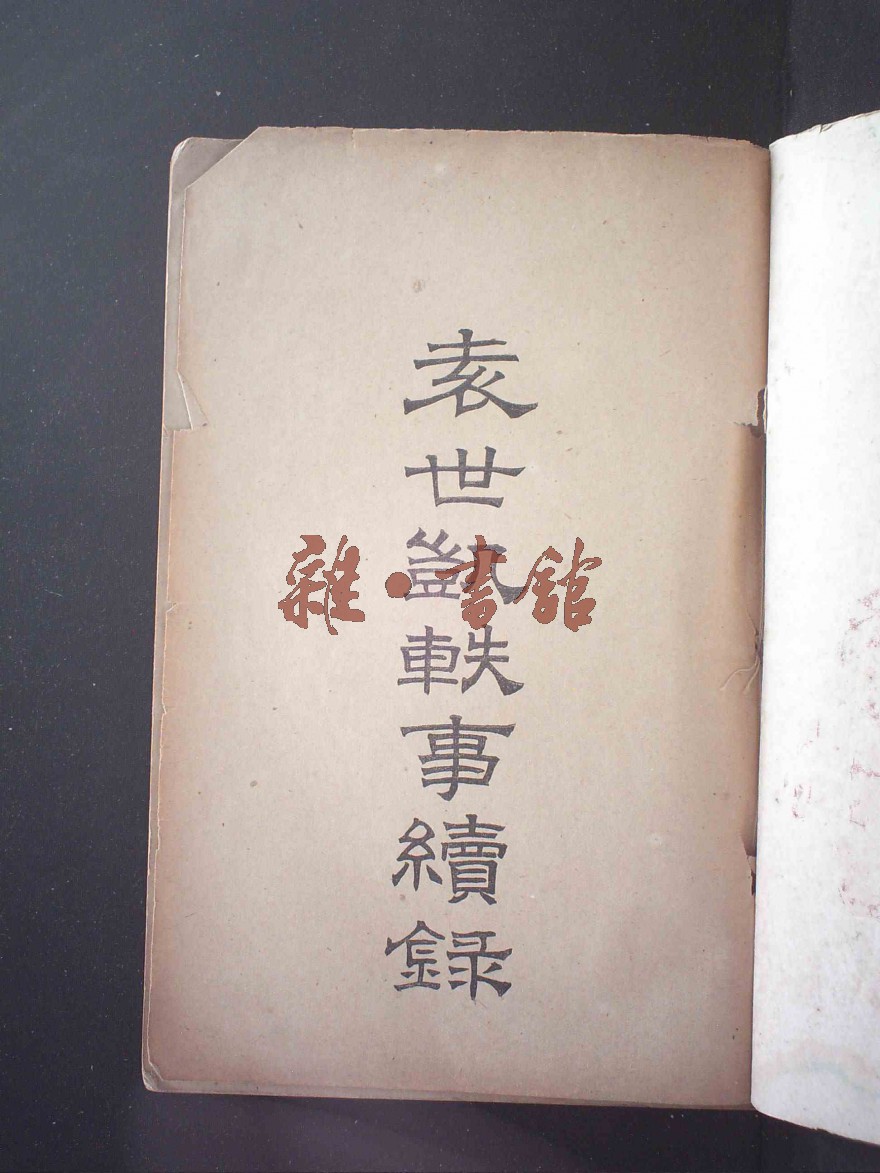 袁世凱軼事續錄
雜·書館